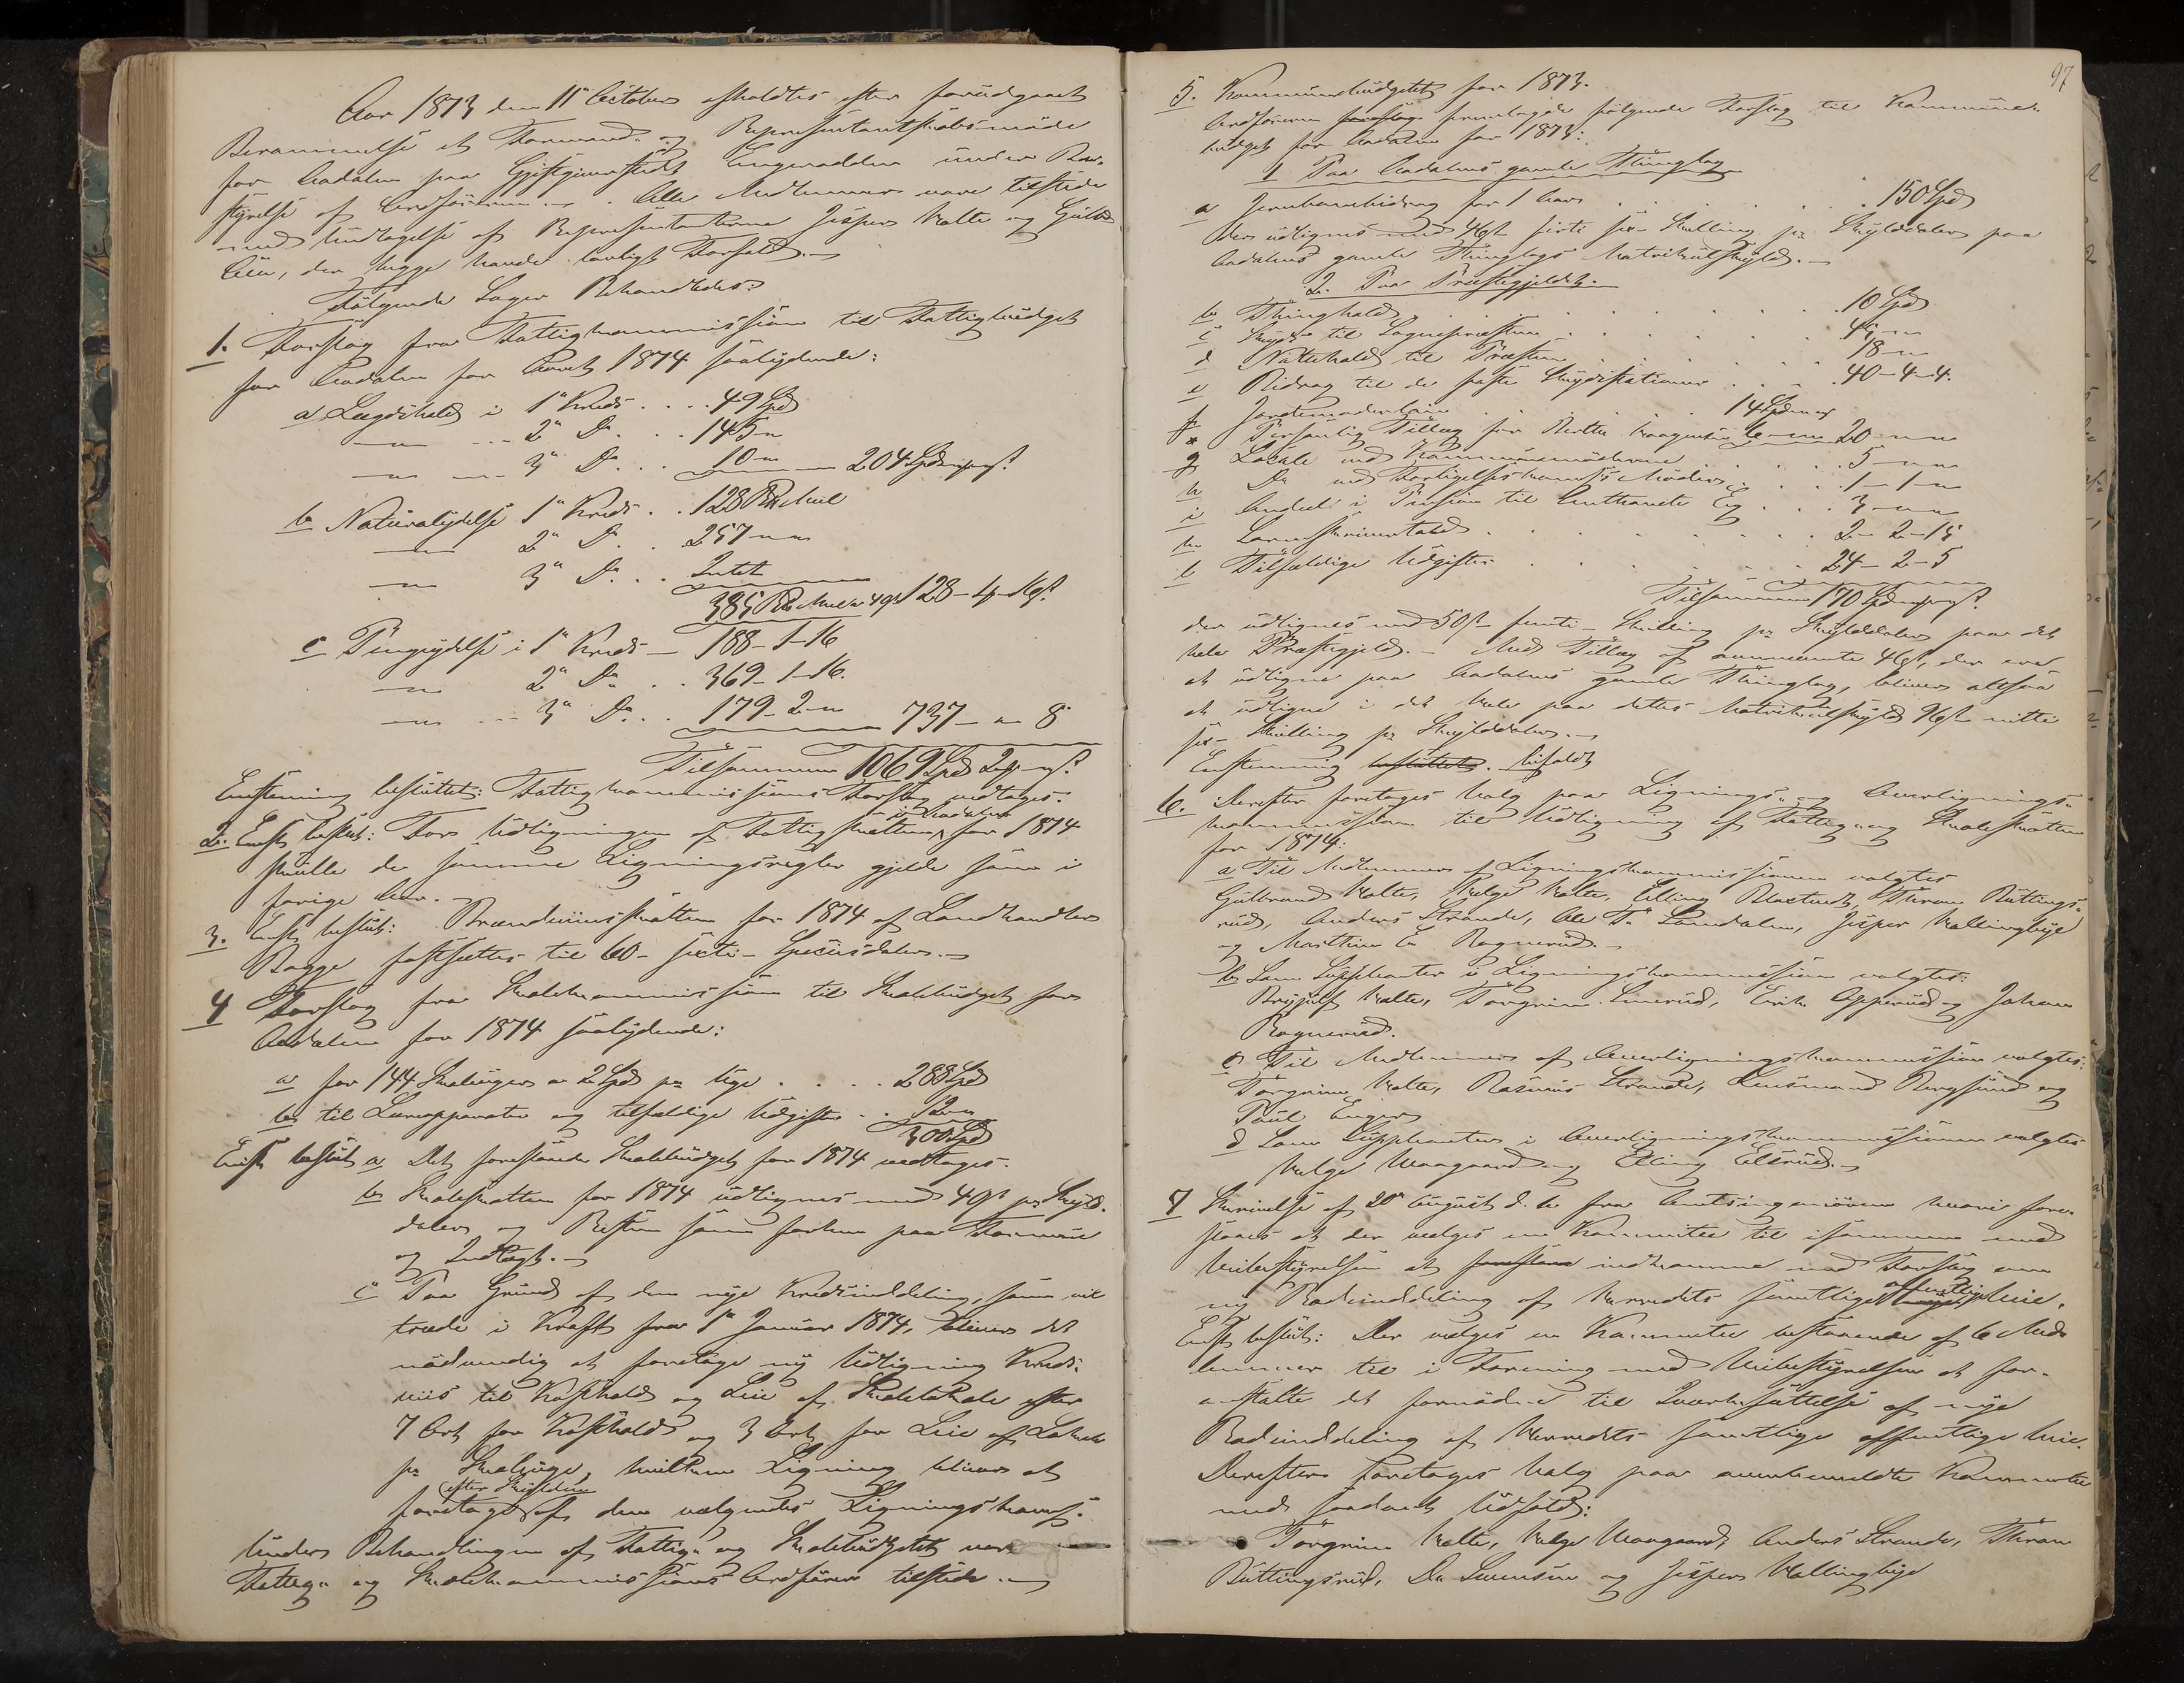 Aar 1873 den 11te October afholdtes efter forudgaaet
Berammelse et Formands- og Repræsentantskabsmöde
for Aadalen paa Gjæstgiverstedet Engeradden under Be-
styrelse af Ordföreren. Alle Medlemmer vare tilstede
med Undtagelse af Repræsentanterne Jesper Valte og
der begge havde lovligt Forfald.
Fölgende Sager Behandledes:
1. Forslag fra Fattigkommissionen til Fattigbudget
for Aadalen for Aaret 1874 saalydende:
a Lægdshold i 1ste Kreds . . . 49 Spd
— 2den Do . . 145 "
— 3die Do . . 10 " 204 Spd
b Naturalydelse 1ste Kreds . . 128 Meel
— 2den Do . . 257 "
— 3die Do . . Intet
385 128 - 4 - 16 s.
c Pengeydelse i 1ste Kreds — 188 - 1 - 16
— 2den Do . . 369 - 1 - 16.
— 3die Do . . 179 - 2 - " 737 - " - 8
Tilsammen 1069 Spd
Enstemmig besluttet: Fattigkommissionens Forslag vedtages.
2. Enst. beslut: For Udligningen af Fattigskatten i Aadalen for 1874
skulle de samme Ligningsregler gjelde som i
forige Aar.
3. Enst. beslut: Brændeviinsskatten for 1874 af Landhandler
Bagge fastsættes til 60 - sexti - Speciesdaler.
4 Forslag fra Skolekommissionen til Skolebudget for
Aadalen for 1874 saalydende:
a for 144 Skoleuger a 2 Spd pr Uge . . . . 288 Spd
b til Læreapparater og tilfældige Udgifter . . 12 "
300 Spd
Enst. beslut a Det forestaaende Skolebudget for 1874 vedtages.
b Skoleskatten for 1874 udlignes med 40 s pr Skyld-
daler og Resten som forhen paa Formue
og Indtægt.
c Paa Grund af den nye Kredsinddeling, som vil
træde i Kraft fra 1ste Januar 1874, bliver det
nödvendig at foretage ny Udligning Kreds-
viis til Kosthold og Leie af Skolelokale efter
7 Ort for Kosthold og 3 Ort for Leie af Lokale
pr Skoleuge, hvilken Ligning bliver at
efter Skylden
foretage af den valgendes Ligningskomss.
Under Behandlingen af Fattig- og Skolebudgettet vare
Fattig- og Skolekommissions Ordförer tilstede.
97
5. Kommunebudgettet for 1873.
Ordföreren fremlagde fölgende Forslag til Kommune-
budget for Aadalen for 1873:
1 Paa Aadalens gamle Thinglag
a Jernbanebidrag for 1 Aar . . . . . . . 150 Spd
der udlignes med 46 s firti sex - Skilling pr Skylddaler paa
Aadalens gamle Thinglags Matrikulskyld.
2. Paa Præstegjeldet.
b Thinghold . . . . . . . . . 10 Spd
c Skyds til Sognepræsten . . . . . . 45 "
d Nattehold til Præsten . . . . . . 18 "
e Bidrag til de faste Skydsstationer . . . . 40 - 4 - 4.
f Jordemoderlön . . . . . 14 Spd
Personlig Tillæg for 6 - " 20 - " - "
g Lokale ved Kommunemöderne . . . . 5 - " - "
h Do ved Forligelseskomss Möder . . . 1 - 1 - "
i Andeel i Pension til Enthavede Eg . . . 3 - " - "
k . . . . . . . 2 - 2 - 15
l Tilfældige Udgifter . . . . . . 24 - 2 - 5
Tilsammen 170 Spd
der udlignes med 50 s femti - Skilling pr Skylddaler paa det
hele Præstegjeld. Med Tillæg af ovennævnte 46 s, der er
at udligne paa Aadalens gamle Thinglag, bliver altsaa
at udligne i det Hele paa dettes Matrikulskyld 96 s nitti
sex - Skilling pr Skylddaler.
Enstemmig besluttet. bifaldt
6. Derefter foretages Valg paa Lignings- og Overlignings-
kommission til Udligning af Fattig- og Skoleskatten
for 1874:
a Til Medlemmer af Ligningskommissionen valgtes
Gulbrand Valte, Helge Valte, Elling Thron Buttings-
rud, Anders Strande, Ole Ts. Sandalen, Jesper Hallingbye
og Marthin En Ragnerud.
b Som Supleanter i Ligningskommissionen valgtes:
Brynjulf Valte, Torgrim Erik Opperud og Johan
Ragnerud.
c Til Medlemmer af Overligningskommissionen valgtes:
Torgrim Valte, Rasmus Strande, Lensmand Bergsund og
Poul Enger
d Som Supleanter i Overligningskommissionen valgtes
Helge Haagaard og Elling Elsrud.
7 Skrivelse af 20de August d. A. fra Amtsingeniören hvori fore-
staaes at der vælges en Kommitee til isammen med
Veibestyrelsen at indkomme med Forslag om
ny Rodeinddeling af Herredets samtlige offentlige Veie.
Enst. beslut: Der vælges en Kommitee bestaaende af 6 Med-
lemmer til i Forening med Veibestyrelsen at for-
anstalte det fornödne til Iværksættelse af nye
Rodeinddeling af Herredets samtlige offentlige Veie.
Derefter foretages Valg paa ovenbemeldte Kommitee
med saadant Udfald:
Torgrim Valte, Helge Haagaard, Anders Strande, Thron
Buttingsrud, Ole Svensen og Jesper Hallingbye